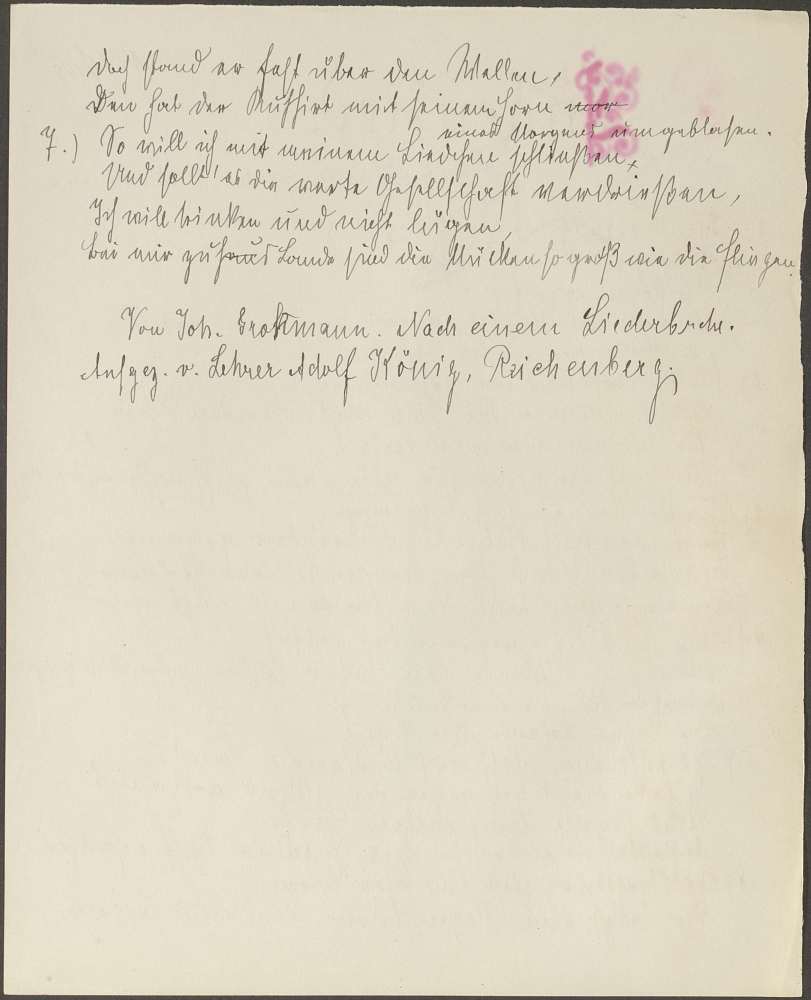 Doch stand er fest über den Wellen,
Den hat der Kuhhirt mit seinem Horn mor
eines Morgens umgeblasen.
7.) So will ich mit meinem Liedchen schließen,
Und sollt' es die werte Gesellschaft verdrießen,
Ich will trinken und nicht lügen,
bei mir zuhaus Lande sind die Mücken so groß wie die Fliegen.
Von Joh. Brokmann. Nach einem Liederbche.
Aufgez. v. Lehrer Adolf König, Reichenberg.